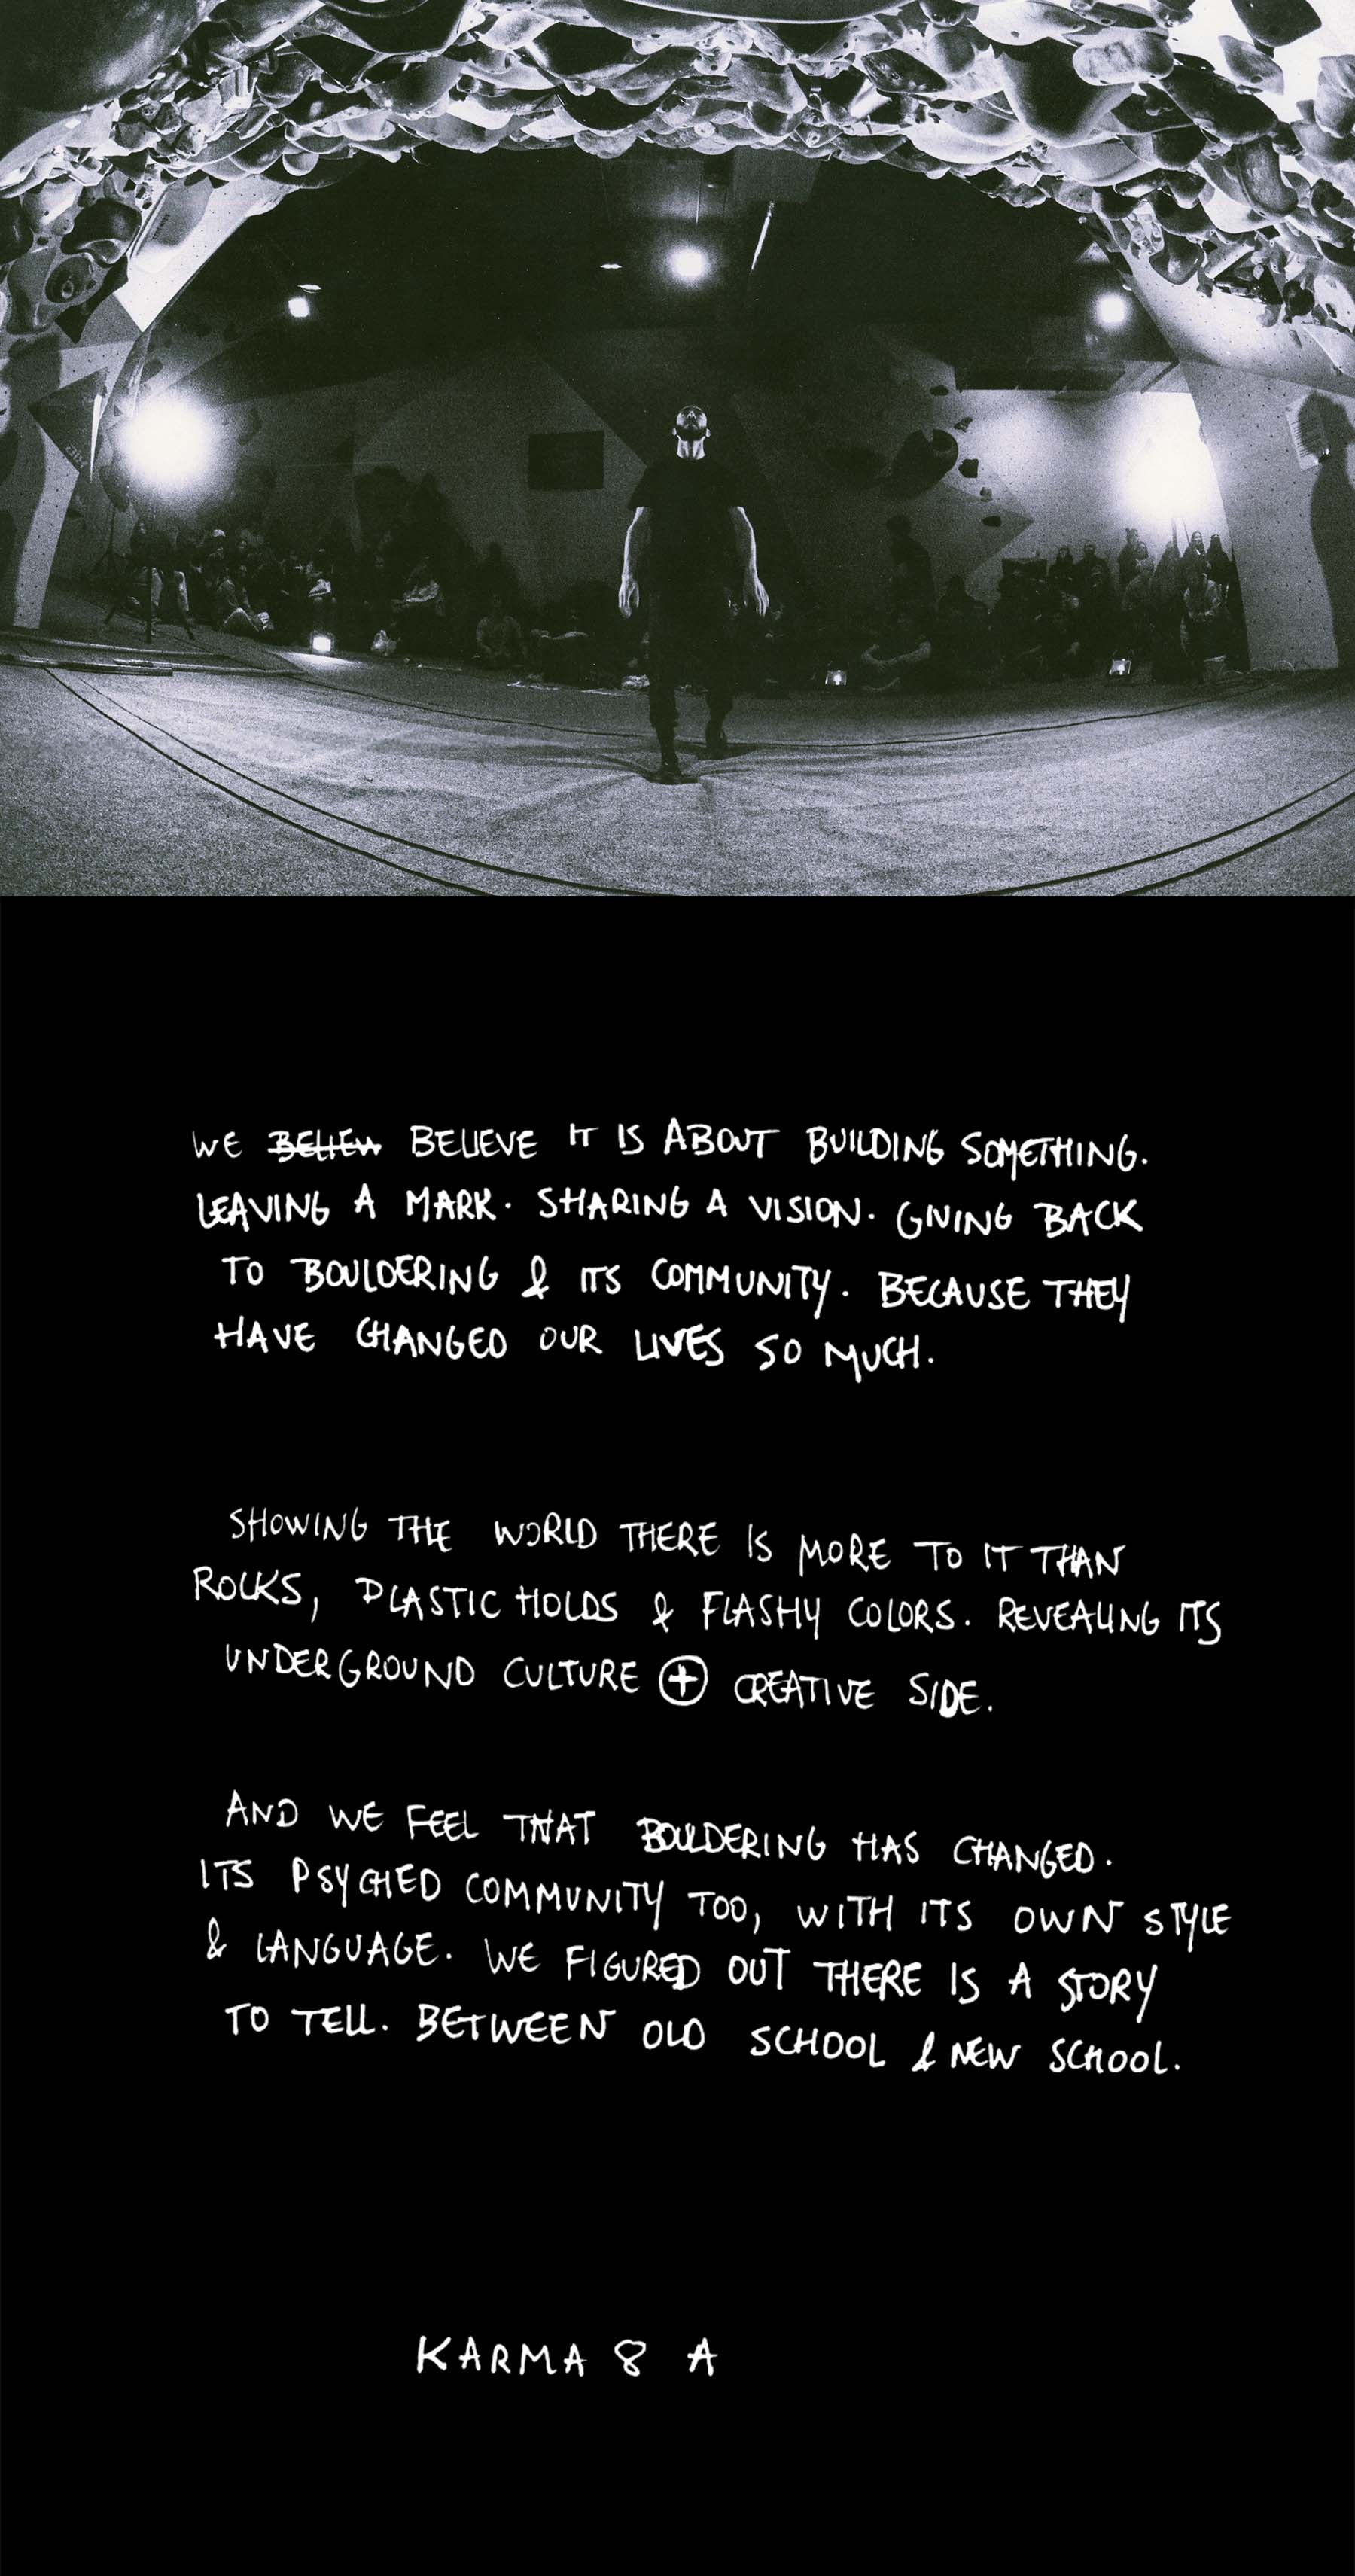 WE BELIEV BELIEVE IT IS ABOUT BUILDING SOMETHING.
LEAVING A MARK. SHARING A VISION. GIVING BACK
TO BOULDERING & ITS COMMUNITY. BECAUSE THEY
HAVE CHANGED OUR LIVES SO MUCH.
SHOWING THE WORLD THERE IS MORE TO IT THAN
ROCKS, PLASTIC HOLDS & FLASHY COLORS. REVEALING ITS
UNDERGROUND CULTURE + CREATIVE SIDE.
AND WE FEEL THAT BOULDERING HAS CHANGED.
ITS PSYCHED COMMUNITY TOO, WITH ITS OWN STYLE
& LANGUAGE. WE FIGURED OUT THERE IS A STORY
TO TELL. BETWEEN OLD SCHOOL & NEW SCHOOL.
KARMA 8 A